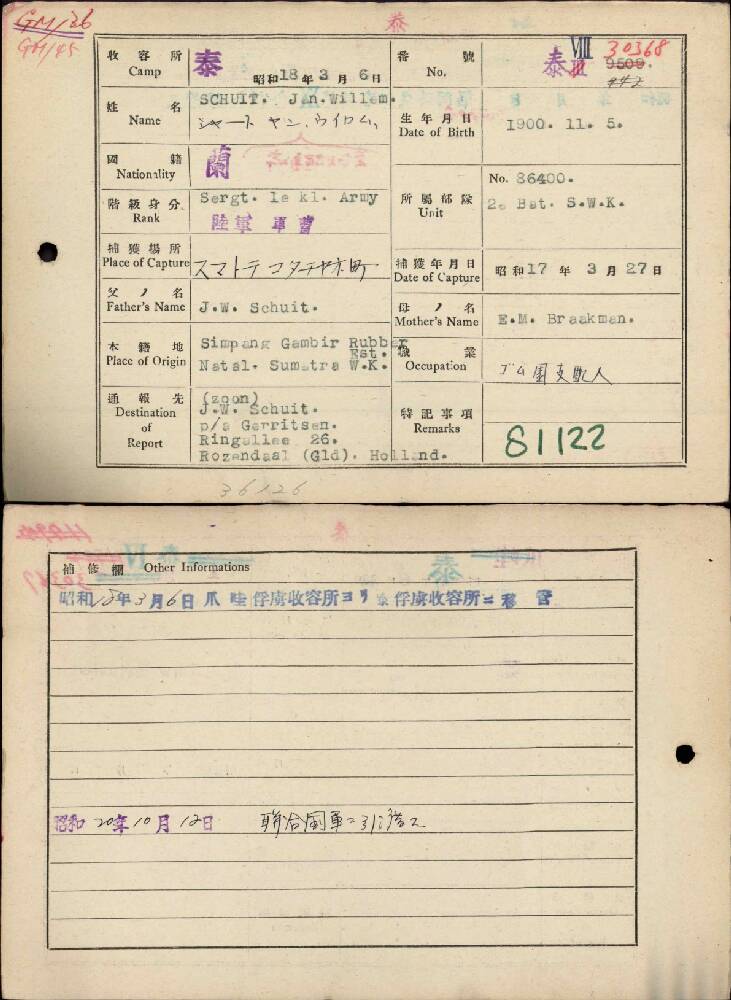 GM/26
GM/45
泰
收容所
Camp
泰
昭和18年3月6日
番號
No.
泰 VIII
30368
9509.
姓名
Name
SCHUIT. Jan.Willem.
シャート ヤン、ウイロム、
生年月日
Date of Birth
1900. 11. 5.
國籍
Nationality
蘭
階級身分
Rank
Sergt. 1e kl. Army
陸軍軍曹
所屬部隊
Unit
No. 86400.
2e Bat. S.W.K.
捕獲場所
Place of Capture
スマトラ コタチヤネ町
捕獲年月日
Date of Capture
昭和17年3月27日
父ノ名
Father's Name
J.W. Schuit.
母ノ名
Mother's Name
E.M. Braakman.
本籍地
Place of Origin
Simpang Gambir Rubber
Est.
Natal. Sumatra W.K.
職業
Occupation
ゴム園支配人
通報先
Destination
of
Report
(zoon)
J.W. Schuit.
p/a Gerritsen.
Ringallee 26.
Rozendaal (Gld). Holland.
特記事項
Remarks
81122
36126
補修欄 Other Informations
昭和18年3月6日爪哇俘虜收容所ヨリ泰俘虜收容所ニ移管
昭和20年10月12日 聯合國軍ニ引渡ス